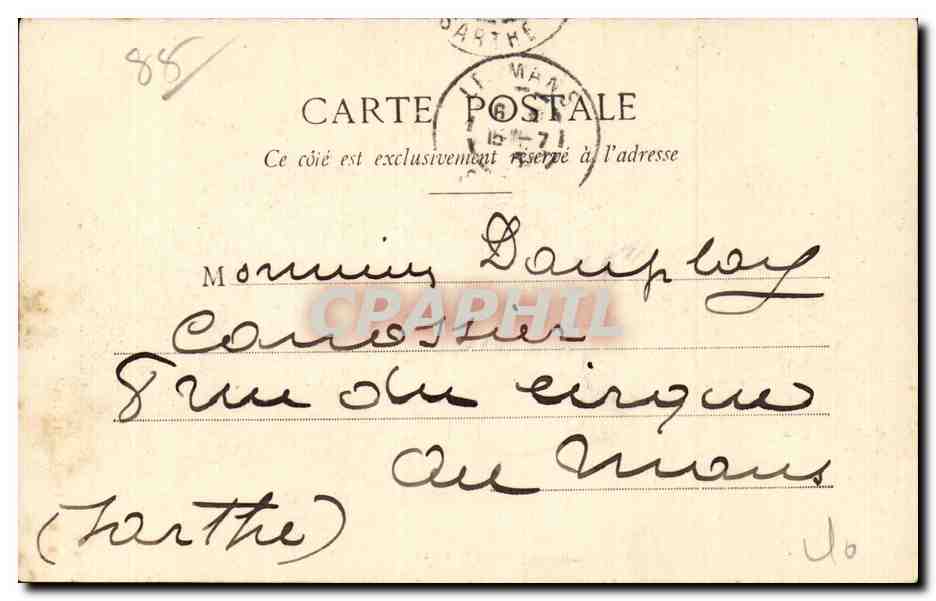 88
SARTHE
LE MANS
6
15 7
CARTE POSTALE
Ce côté est exclusivement réservé à l'adresse
Monsieur Dauplay
CPAPHIL
Carrossier
8 rue du cirque
au Mans
(Sarthe)